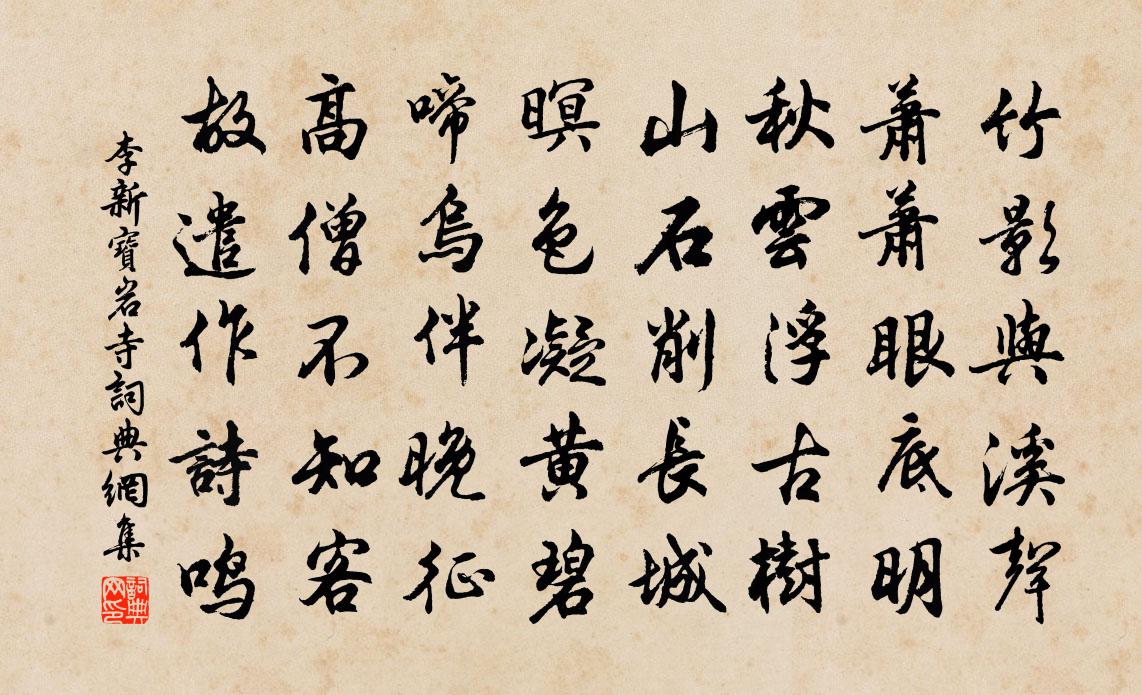 竹影與溪聲
蕭蕭眼底明
秋雲浮古樹
山石削長城
暝色凝黄碧
啼烏伴晚征
高僧不知客
故遣作詩鳴
李新寶岩寺詞典網集
詞典網印